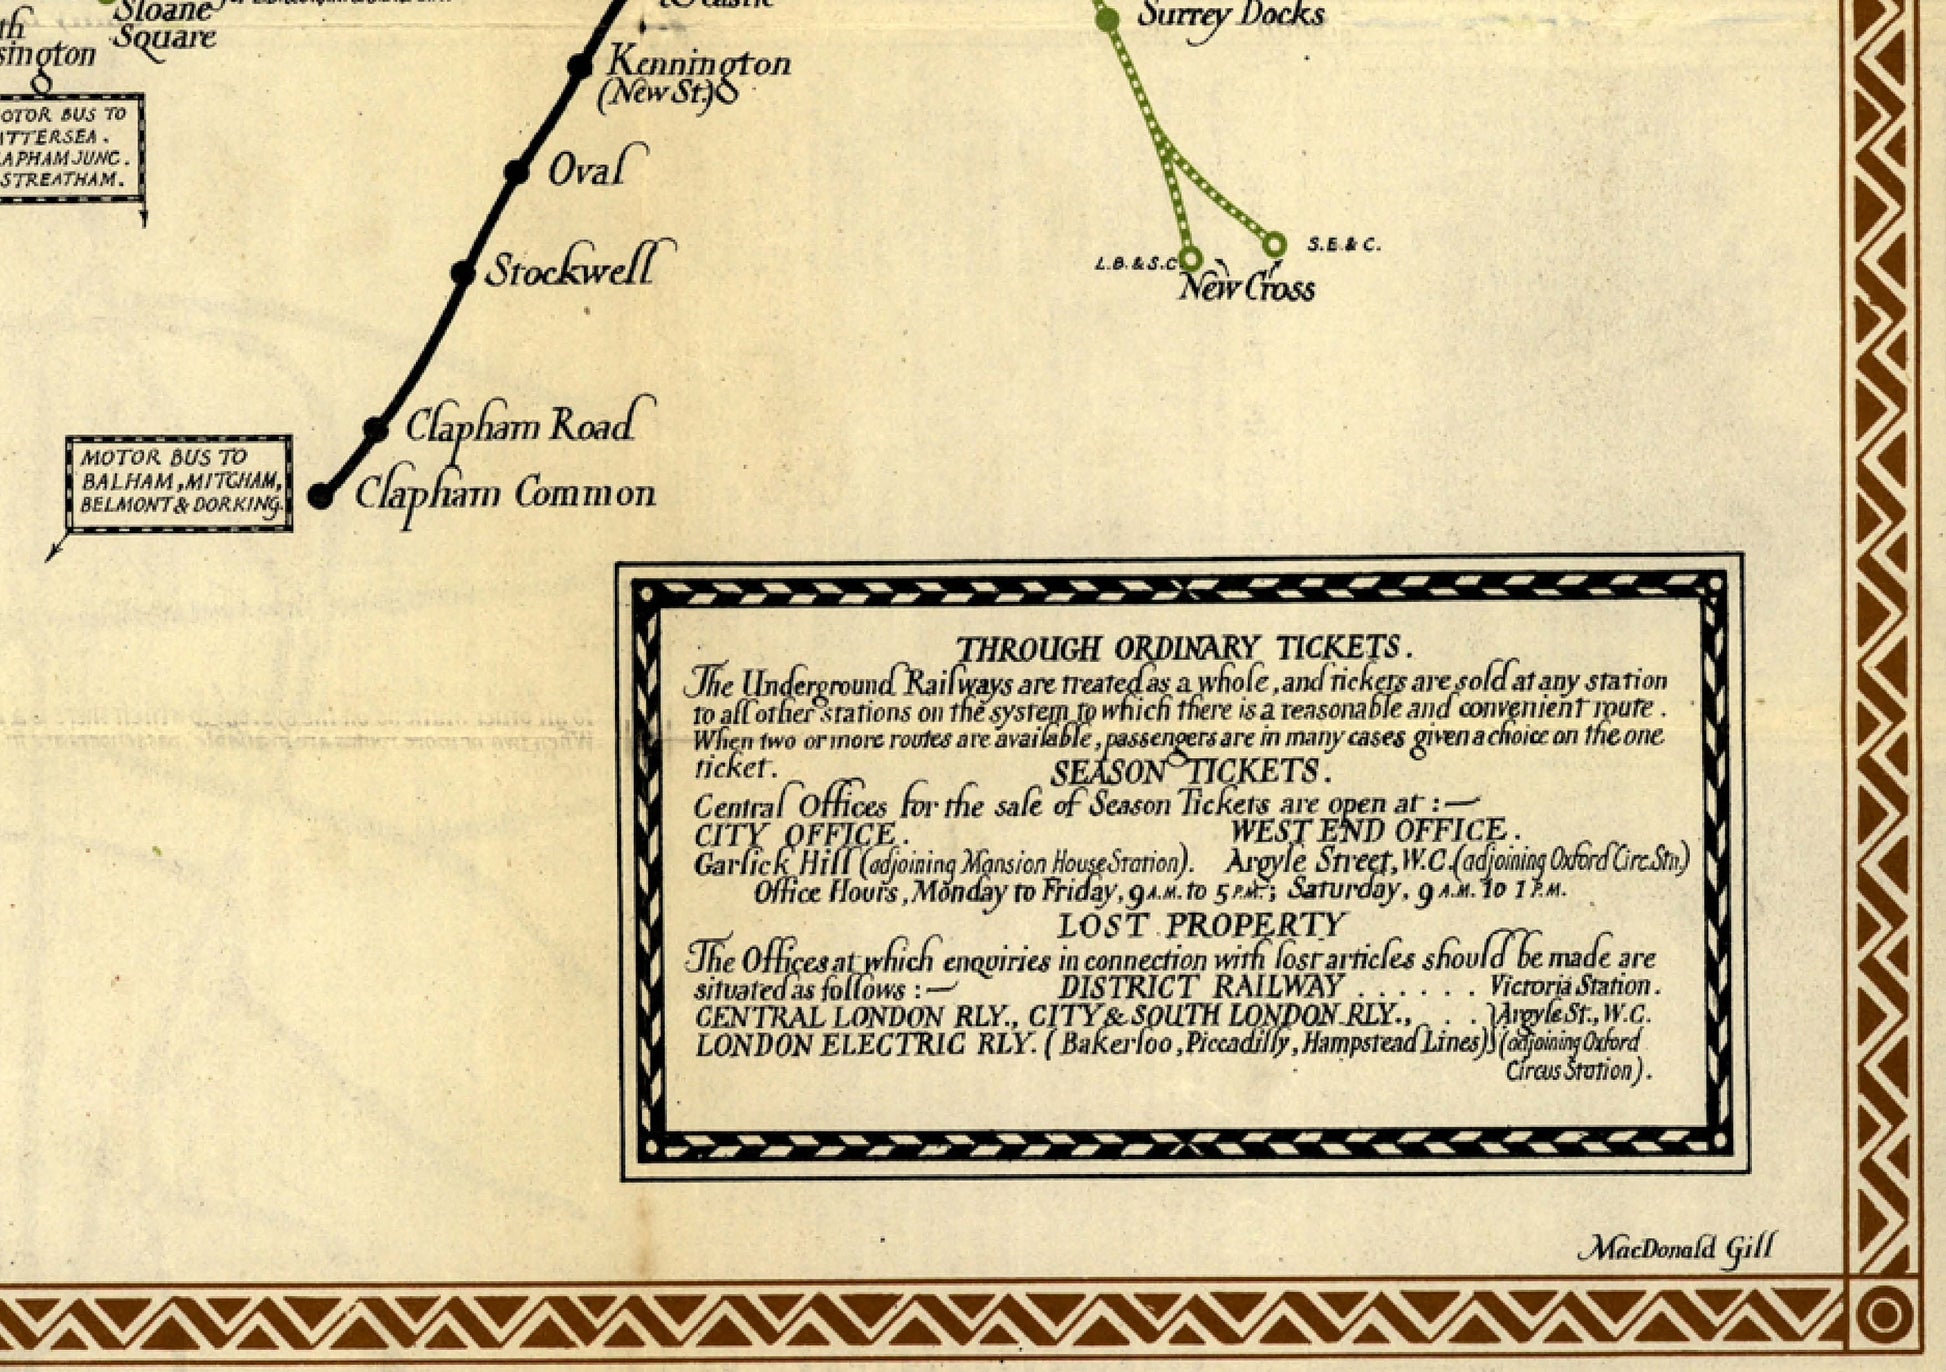 Sloane
Square
Kennington
(New St.)
Surrey Docks
OTOR BUS TO
ATTERSEA.
APHAM JUNC.
STREATHAM.
Oval
Stockwell
L.B.&S.C.
S.E.& C.
New Cross
Clapham Road
Clapham Common
MOTOR BUS TO
BALHAM, MITCHAM,
BELMONT & DORKING.
THROUGH ORDINARY TICKETS.
The Underground Railways are treated as a whole, and tickets are sold at any station
to all other stations on the system to which there is a reasonable and convenient route.
When two or more routes are available, passengers are in many cases given a choice on the one
ticket.
SEASON TICKETS.
Central Offices for the sale of Season Tickets are open at :—
CITY OFFICE. WEST END OFFICE.
Garlick Hill (adjoining Mansion House Station). Argyle Street, W.C. (adjoining Oxford Circ. Stn)
Office Hours, Monday to Friday, 9 A.M. to 5 P.M.; Saturday, 9 A.M. to 1 P.M.
LOST PROPERTY
The Offices at which enquiries in connection with lost articles should be made are
situated as follows :— DISTRICT RAILWAY . . . . . . Victoria Station.
CENTRAL LONDON RLY., CITY & SOUTH LONDON RLY., . . } Argyle St., W.C.
LONDON ELECTRIC RLY. (Bakerloo, Piccadilly, Hampstead Lines) } (adjoining Oxford
Circus Station).
MacDonald Gill